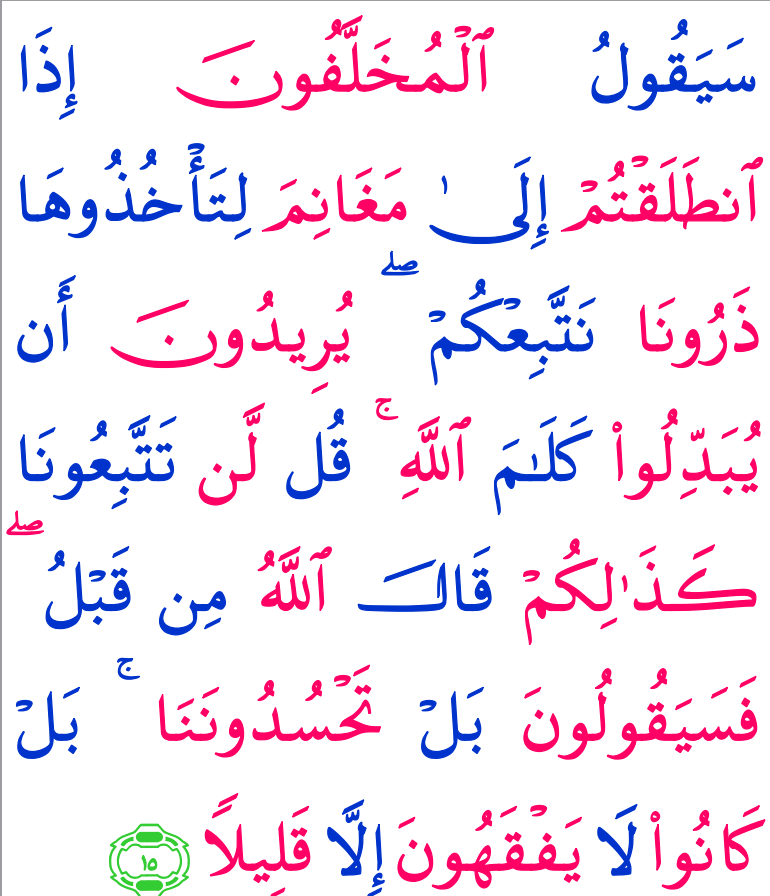 سَيَقُولُ ٱلْمُخَلَّفُونَ إِذَا
ٱنطَلَقْتُمْ إِلَىٰ مَغَانِمَ لِتَأْخُذُوهَا
ذَرُونَا نَتَّبِعْكُمْ ۖ يُرِيدُونَ أَن
يُبَدِّلُوا۟ كَلَـٰمَ ٱللَّهِ ۚ قُل لَّن تَتَّبِعُونَا
كَذَٰلِكُمْ قَالَ ٱللَّهُ مِن قَبْلُ ۖ
فَسَيَقُولُونَ بَلْ تَحْسُدُونَنَا ۚ بَلْ
كَانُوا۟ لَا يَفْقَهُونَ إِلَّا قَلِيلًا ١٥